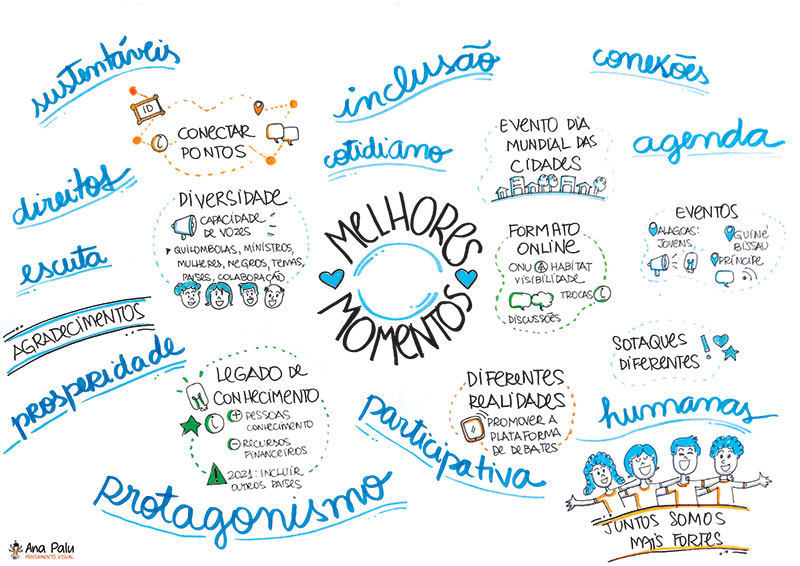 sustentáveis
inclusão
conexões
ID
CONECTAR
PONTOS
cotidiano
EVENTO DIA
MUNDIAL DAS
CIDADES
agenda
direitos
DIVERSIDADE
CAPACIDADE
DE VOZES
QUILOMBOLAS, MINISTROS,
MULHERES, NEGROS, TEMAS,
PAÍSES, COLABORAÇÃO
MELHORES
MOMENTOS
FORMATO
ONLINE
ONU HABITAT
VISIBILIDADE
TROCAS
DISCUSSÕES
EVENTOS
ALAGOAS:
JOVENS
GUINÉ
BISSAU
PRÍNCIPE
escuta
AGRADECIMENTOS
prosperidade
SOTAQUES
DIFERENTES
LEGADO DE
CONHECIMENTO
+ PESSOAS
CONHECIMENTO
- RECURSOS
FINANCEIROS
2021: INCLUIR
OUTROS PAÍSES
DIFERENTES
REALIDADES
PROMOVER A
PLATAFORMA
DE DEBATES
participativa
humanas
protagonismo
JUNTOS SOMOS
MAIS FORTES
Ana Palu
PENSAMENTO VISUAL